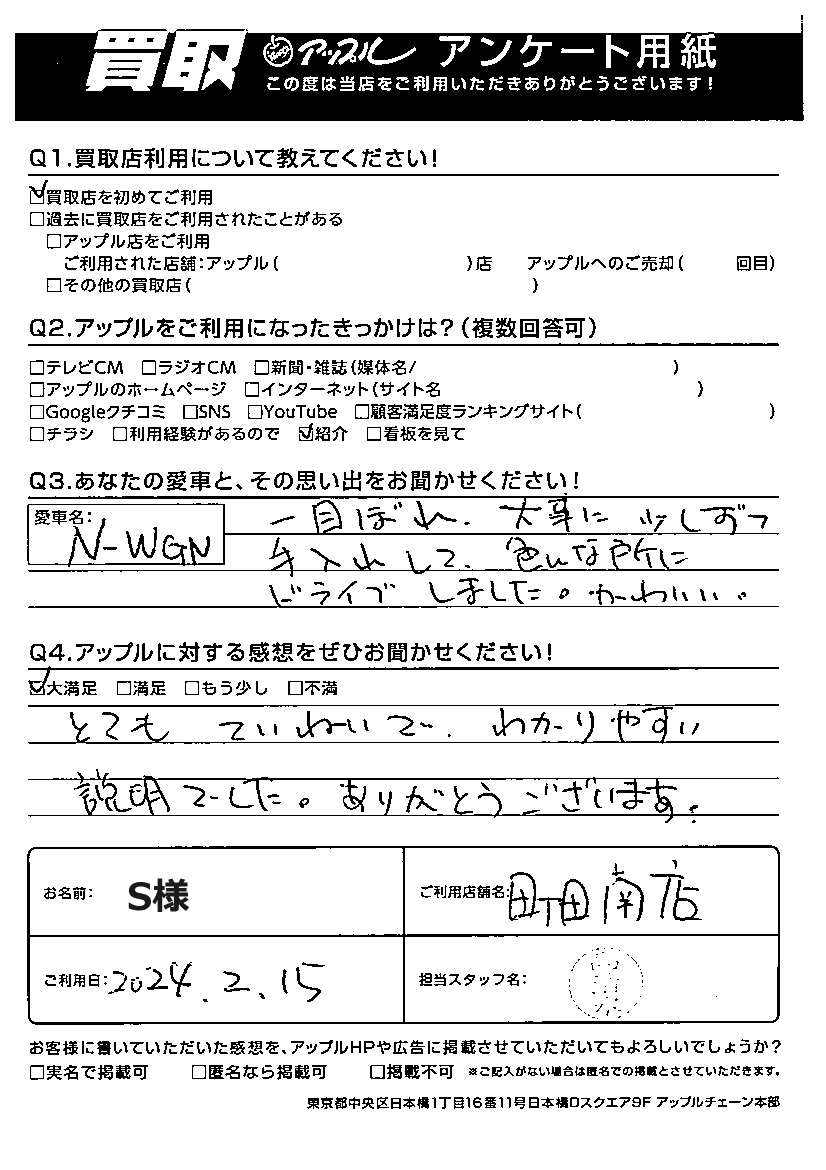 買取 アップル アンケート用紙
この度は当店をご利用いただきありがとうございます!
Q1.買取店利用について教えてください!
☑買取店を初めてご利用
□過去に買取店をご利用されたことがある
□アップル店をご利用
ご利用された店舗:アップル( )店 アップルへのご売却( 回目)
□その他の買取店( )
Q2.アップルをご利用になったきっかけは?(複数回答可)
□テレビCM □ラジオCM □新聞・雑誌(媒体名/ )
□アップルのホームページ □インターネット(サイト名 )
□Googleクチコミ □SNS □YouTube □顧客満足度ランキングサイト( )
□チラシ □利用経験があるので ☑紹介 □看板を見て
Q3.あなたの愛車と、その思い出をお聞かせください!
愛車名: N-WGN
一目ぼれ、大事に少しずつ
手入れして、色んな所に
ドライブしました。かわいい。
Q4.アップルに対する感想をぜひお聞かせください!
☑大満足 □満足 □もう少し □不満
とても ていねいで、わかりやすい
説明でした。ありがとうございます。
お名前: S様 ご利用店舗名: 町田南店
ご利用日: 2024.2.15 担当スタッフ名:
お客様に書いていただいた感想を、アップルHPや広告に掲載させていただいてもよろしいでしょうか?
□実名で掲載可 □匿名なら掲載可 □掲載不可 ※ご記入がない場合は匿名での掲載とさせていただきます。
東京都中央区日本橋1丁目16番11号日本橋Dスクエア9F アップルチェーン本部